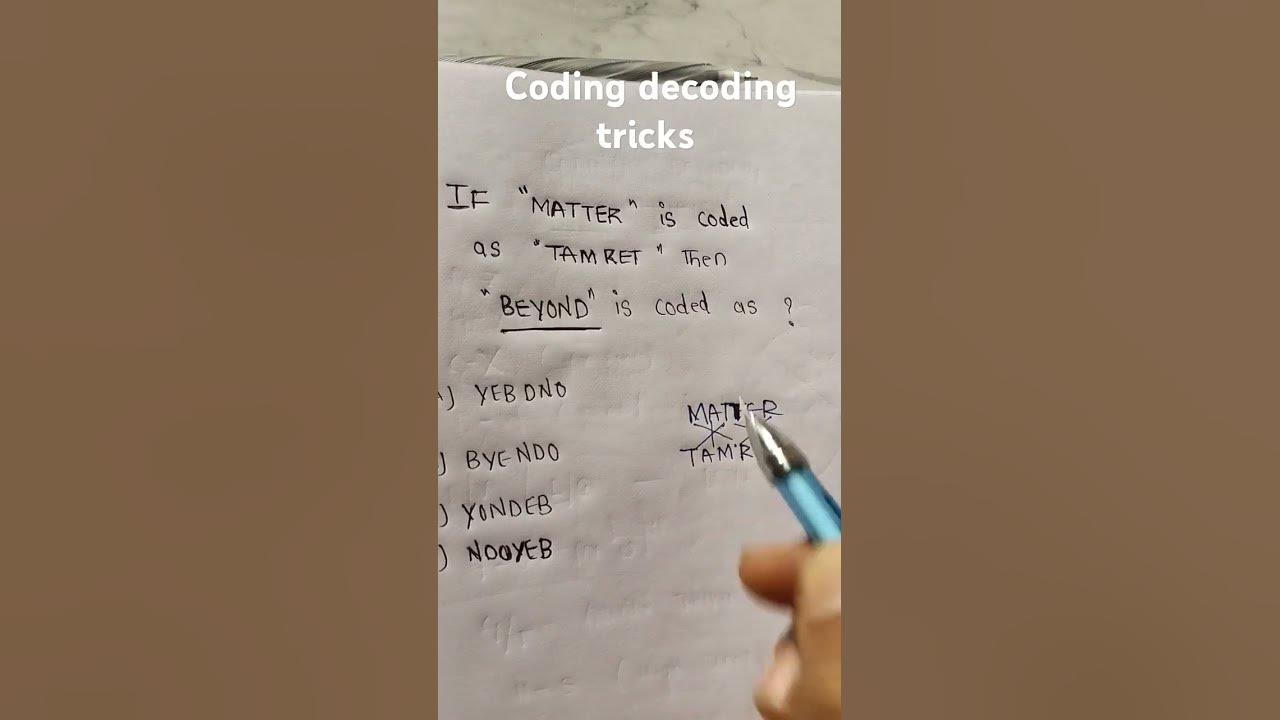 Coding decoding
tricks
IF "MATTER" is coded
as "TAMRET" Then
"BEYOND" is coded as ?
A) YEBDNO
) BYENDO
) YONDEB
) NOOYEB
MATTER
TAMR